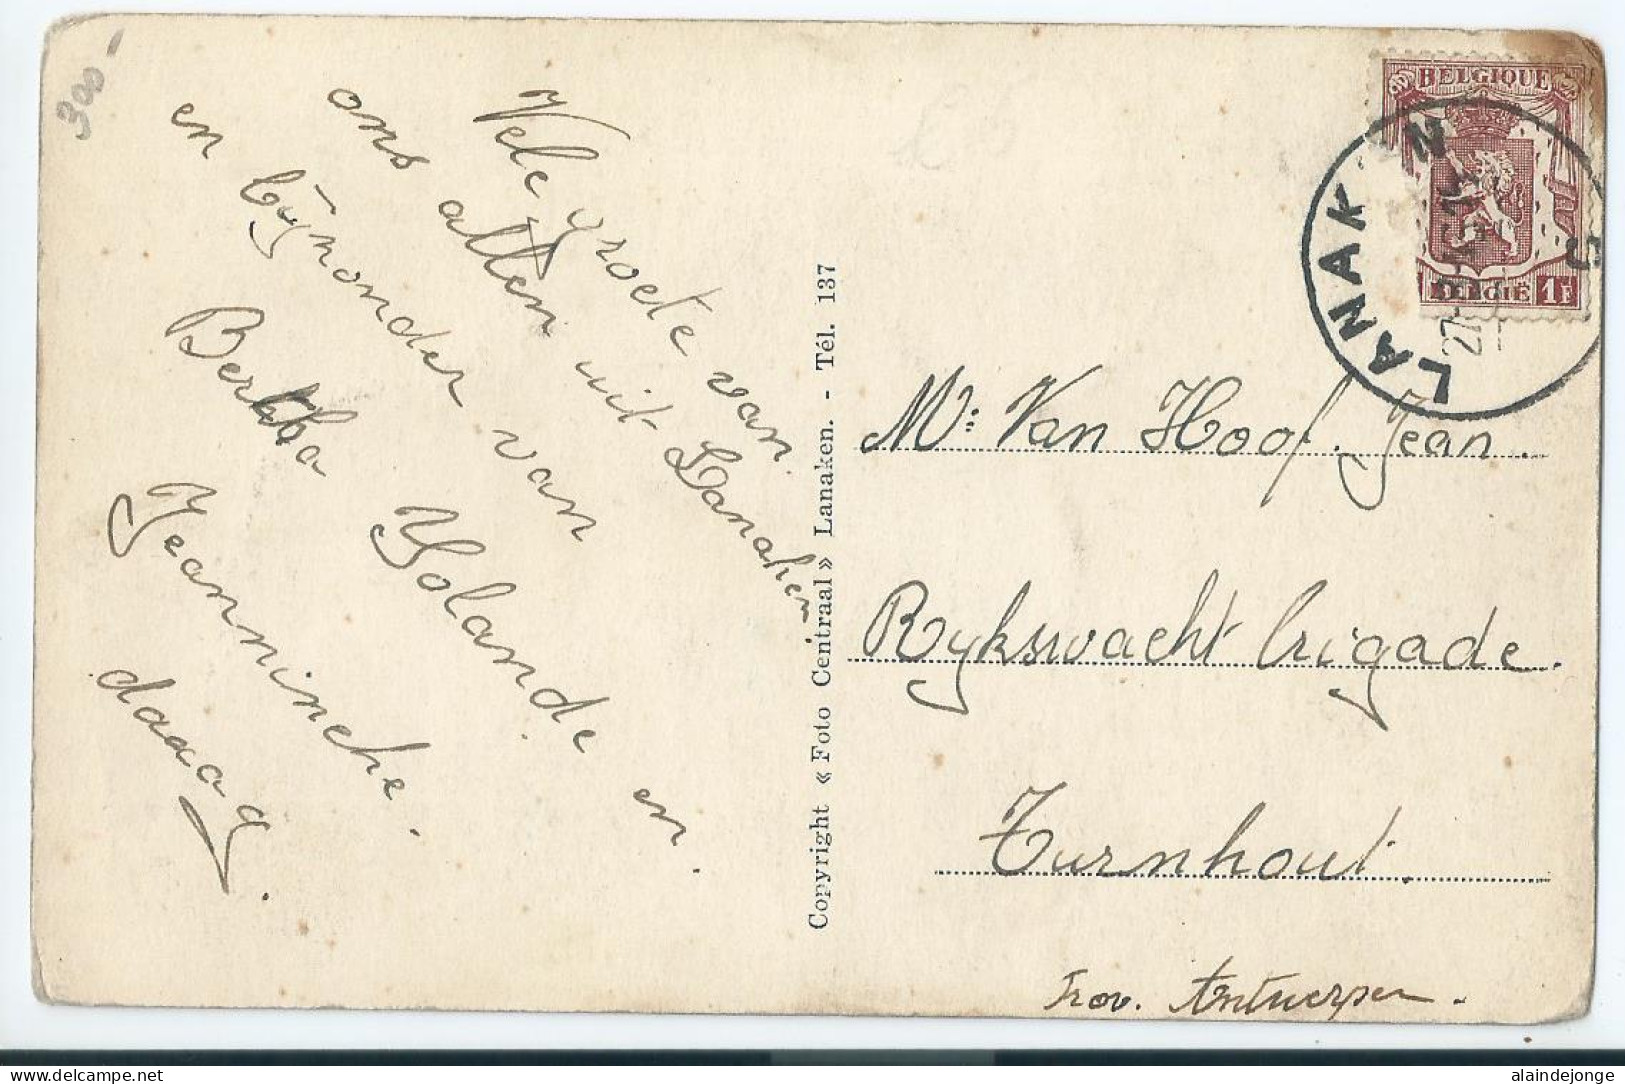 300-
Vele groete van
ons allen uit Lanaken
en bijzonder van
Bertha Yolande en
Jeannineke.
daaag.
Copyright « Foto Centraal » Lanaken. - Tél. 137
BELGIQUE
BELGIË 1F
LANAK N
Mr: Van Hoof Jean
Rijkswacht brigade.
Turnhout.
Prov. Antwerpen.
alaindejonge